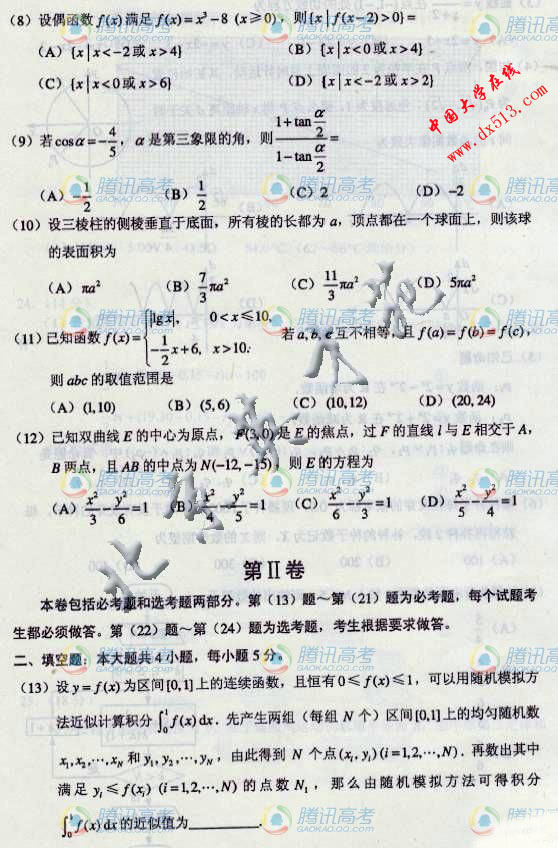 (8) 设偶函数 f(x) 满足 f(x)=x³-8 (x≥0), 则{x|f(x-2)>0}=
(A) {x|x<-2或x>4} (B) {x|x<0或x>4}
(C) {x|x<0或x>6} (D) {x|x<-2或x>2}
中国大学在线
www.dx513.com
(9) 若cosα=-4/5, α是第三象限的角, 则 (1+tan α/2)/(1-tan α/2) =
(A) -1/2 (B) 1/2 (C) 2 (D) -2
(10) 设三棱柱的侧棱垂直于底面, 所有棱的长都为 a, 顶点都在一个球面上, 则该球
的表面积为
(A) πa² (B) 7/3 πa² (C) 11/3 πa² (D) 5πa²
(11) 已知函数 f(x)={ |lgx|, 0<x≤10, -1/2 x+6, x>10. 若 a,b,c 互不相等, 且 f(a)=f(b)=f(c),
则 abc 的取值范围是
(A) (1,10) (B) (5,6) (C) (10,12) (D) (20,24)
(12) 已知双曲线 E 的中心为原点, F(3,0)是 E 的焦点, 过 F 的直线 l 与 E 相交于 A,
B 两点, 且 AB 的中点为 N(-12,-15), 则 E 的方程为
(A) x²/3-y²/6=1 (B) x²/4-y²/5=1 (C) x²/6-y²/3=1 (D) x²/5-y²/4=1
第Ⅱ卷
本卷包括必考题和选考题两部分。第 (13) 题～第 (21) 题为必考题, 每个试题考
生都必须做答。第 (22) 题～第 (24) 题为选考题, 考生根据要求做答。
二、填空题: 本大题共 4 小题, 每小题 5 分。
(13) 设 y=f(x) 为区间[0,1]上的连续函数, 且恒有 0≤f(x)≤1, 可以用随机模拟方
法近似计算积分 ∫₀¹f(x)dx. 先产生两组 (每组 N 个) 区间[0,1]上的均匀随机数
x₁,x₂,⋯,x_N 和 y₁,y₂,⋯,y_N, 由此得到 N 个点(x_i,y_i)(i=1,2,⋯,N). 再数出其中
满足 y_i≤f(x_i) (i=1,2,⋯,N) 的点数 N₁, 那么由随机模拟方法可得积分
∫₀¹f(x)dx 的近似值为________.
腾讯高考
GAOKAO.QQ.COM